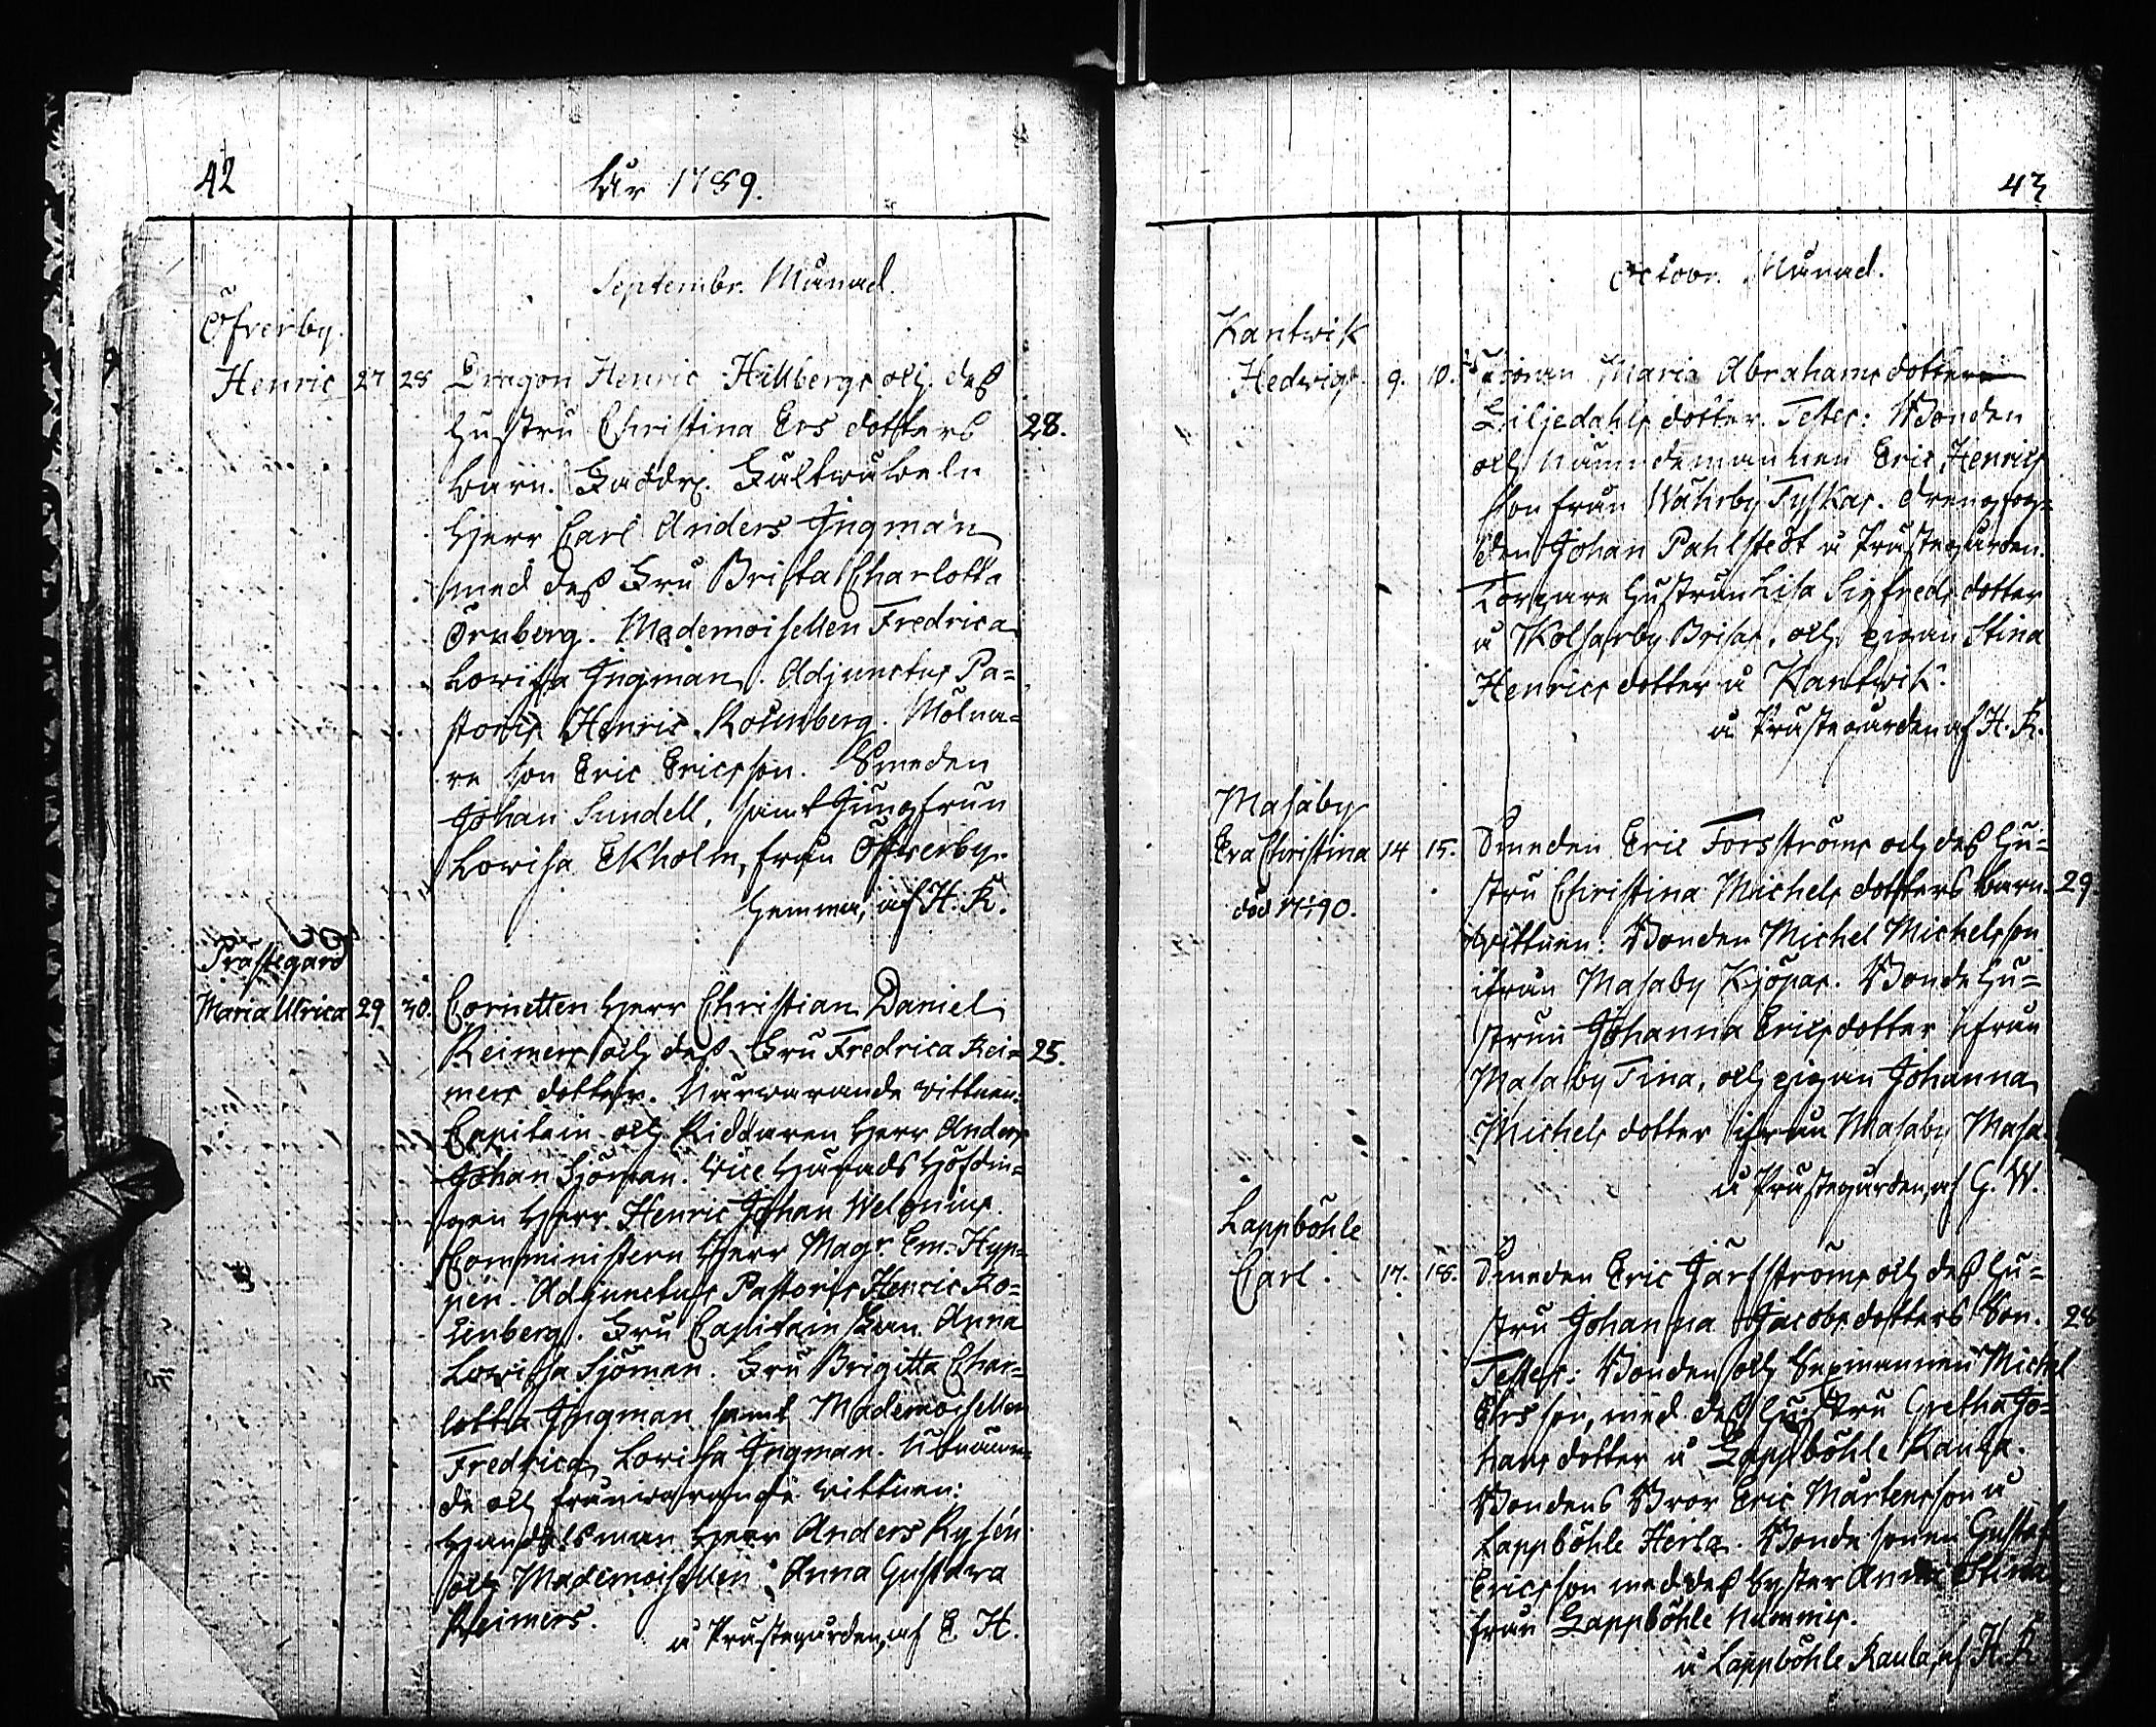 42
År 1789.
Septembr. Månad.
Öfverby.
Henric 27 28 Dragon Henric Hillbergs och dess
hustru Christina Ers dotters 28.
barn. Faddr. Fältwäbeln
Herr Carl Anders Ingman
med dess Fru Brita Charlotta
Örnberg. Mademoisellen Fredrica
Lowisa Ingman. Adjunctus Pa-
storis Henric Rosenberg. Mölna-
re son Eric Ericsson. Smeden
Johan Sundell, samt Jungfrun
Lowisa Ekholm, från Öfwerby.
hemma, af H. R.
Prästegård
Maria Ulrica 29 30. Cornetten Herr Christian Daniel
Reimers och dess Fru Fredrica Rei- 25.
mers dotter. Närwarande vittnen:
Capitain och Riddaren Herr Anders
Johan Sjöman. Vice Härads Höfdin-
gen Herr Henric Johan Welonius.
Comministern Herr Magr. Em. Hyp-
pén. Adjunctus Pastoris Henric Ro-
senberg. Fru Capitainskan Anna
Lowisa Sjöman. Fru Brigitta Char-
lotta Ingman samt Mademoisellen
Fredrica Lowisa Ingman. Utnämn-
de och frånwarande vittnen:
Handelsman Herr Anders Rysén
och Mademoisellen Anna Gustava
Reimers.
å Prästegården, af E. H.
43
Octobr. Månad.
Kantwik
Hedwig. 9. 10. Pigan Maria Abrahams dotter
Liljedahls dotter. Testes: Bonden
och Nämndemannen Eric Henrics
son från Wåhrby Tyskas. Drengfog-
den Johan Pahlstedt å Prästegården.
Torpare hustrun Lisa Sigfreds dotter
å Kolsarby Brisas, och pigan Stina
Henrics dotter å Kantwik.
å Prästegården af H. R.
Masaby
Eva Christina 14 15. Smeden Eric Forsströms och dess hu-
död 1790. stru Christina Michels dotters barn. 29
Wittnen: Bonden Michel Michelsson
ifrån Masaby Kjöpas. Bonde hu-
strun Johanna Ericsdotter ifrån
Masaby Tina, och pigan Johanna
Michels dotter ifrån Masaby Masa.
å Prästegården, af G. W.
Lappböhle
Carl. 17. 18. Smeden Eric Järfströms och dess hu-
stru Johanna Jacobs dotters Son. 28
Testes: Bonden och Sexmannen Michel
Ersson, med dess hustru Gretha Jo-
hans dotter å Lappböhle Kaula.
Bondens Bror Eric Mårtensson å
Lappböhle Herla. Bonde sonen Gustaf
Ericsson med dess Syster Anna Stina
från Lappböhle Nummis.
å Lappböhle Kaula, af H. R.